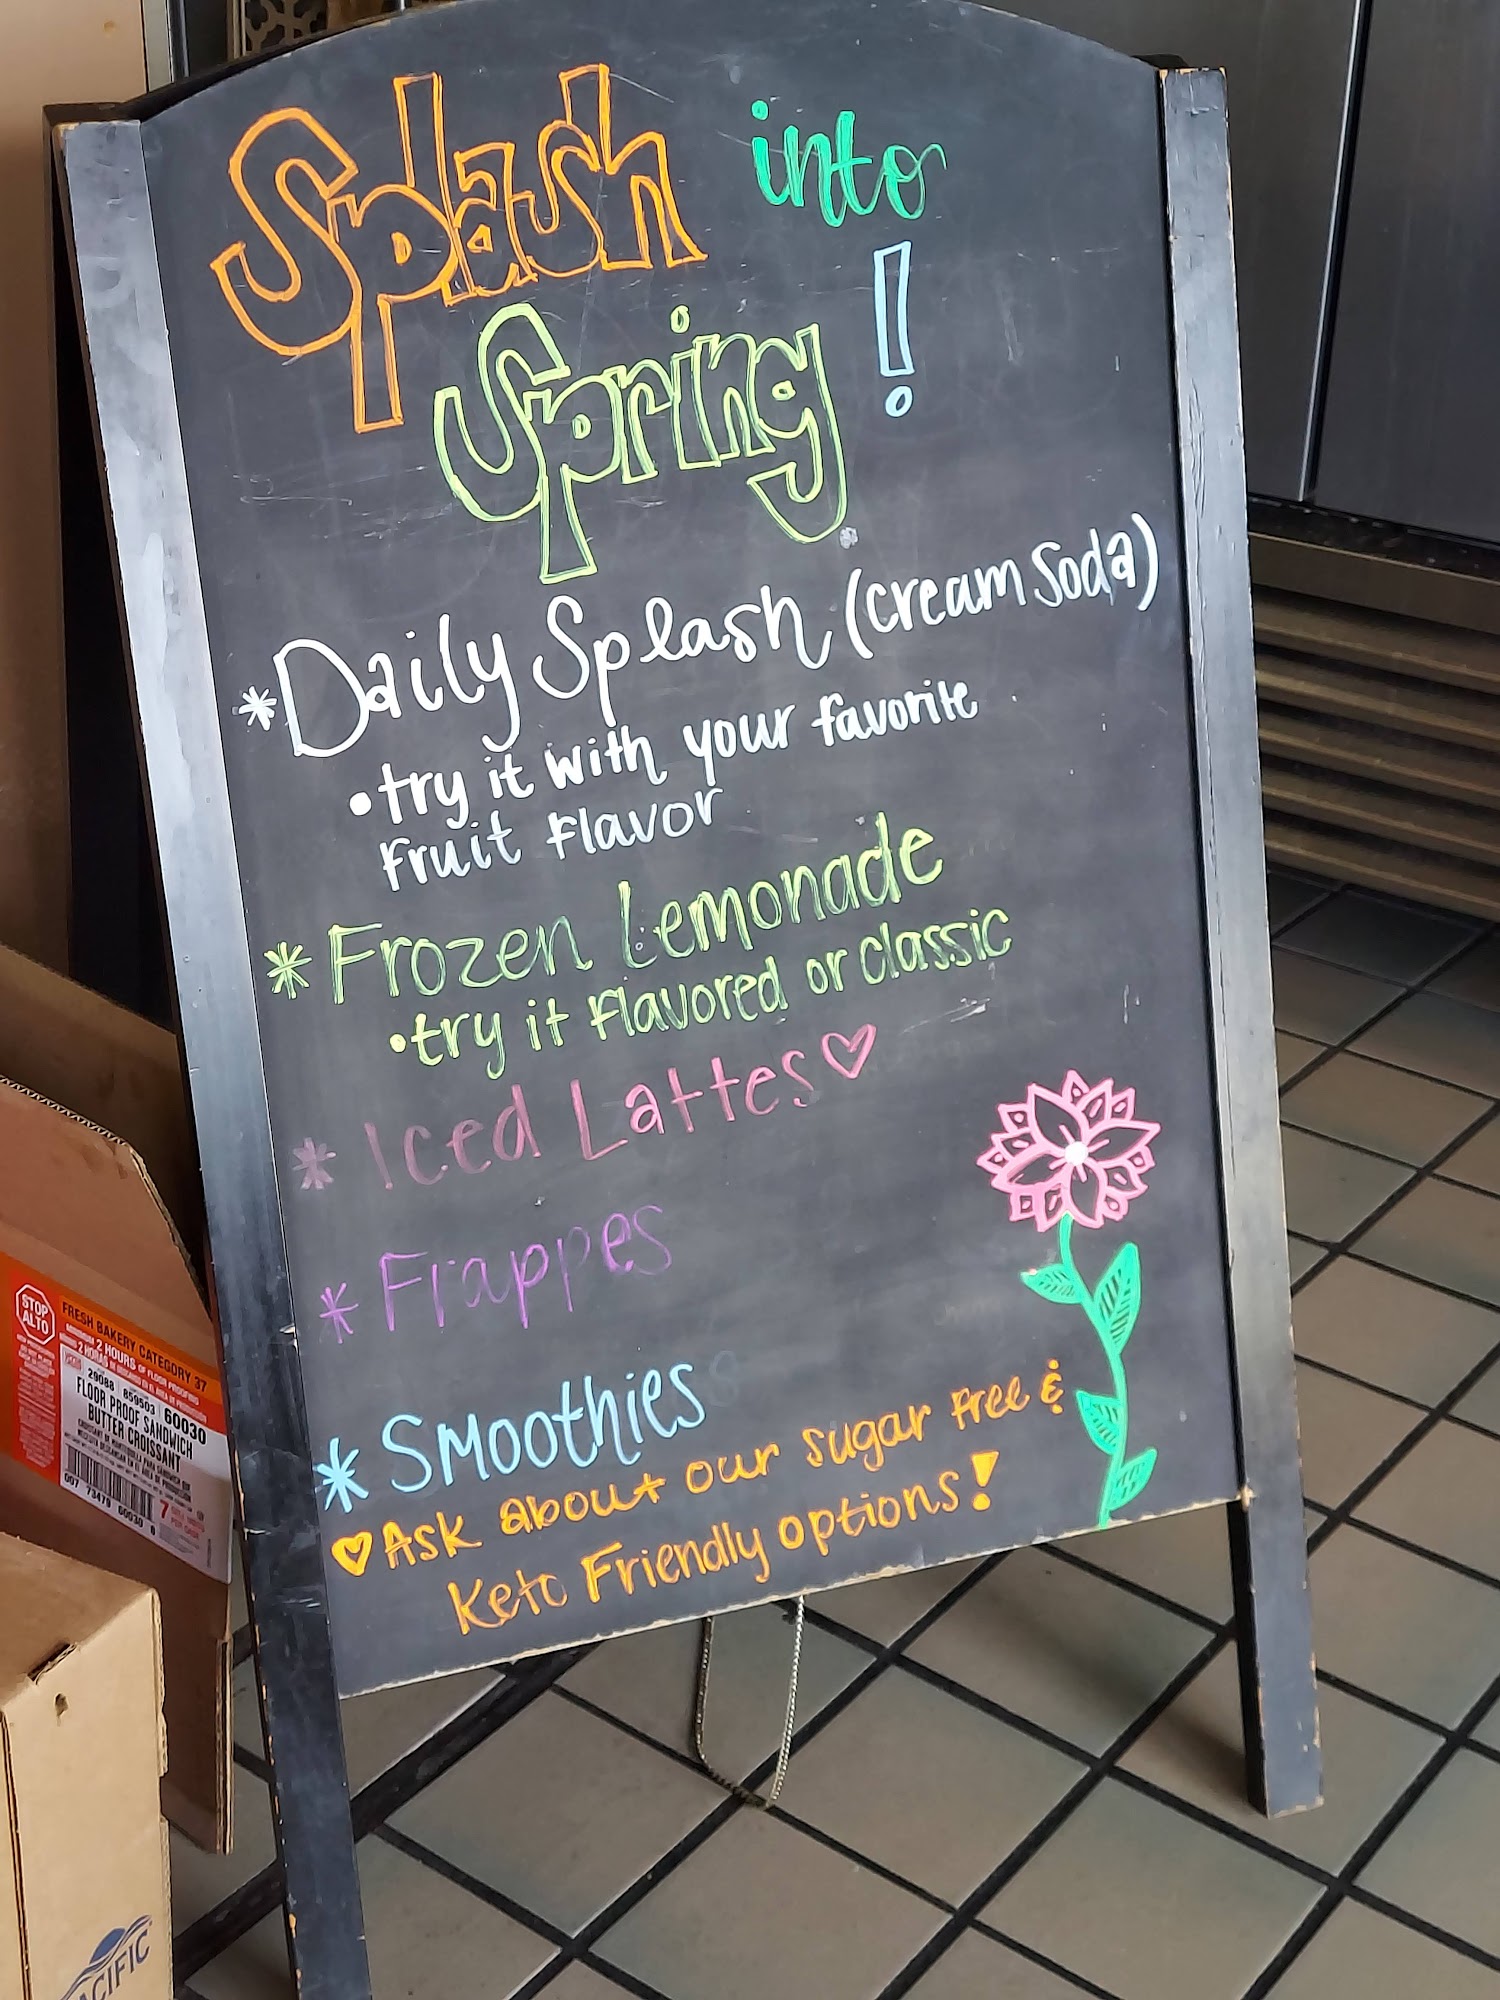 Splash into
Spring !
*Daily Splash (cream soda)
•try it with your favorite
Fruit Flavor
*Frozen Lemonade
•try it Flavored or classic
*Iced Lattes♡
*Frappes
*Smoothies
♡Ask about our sugar free &
Keto Friendly options!
STOP
ALTO
FRESH BAKERY CATEGORY 37
MINIMUM 2 HOURS OF FLOOR PROOFING
29088 859503 60030
FLOOR PROOF SANDWICH
BUTTER CROISSANT
007 73479 60030 6
7
ACIFIC